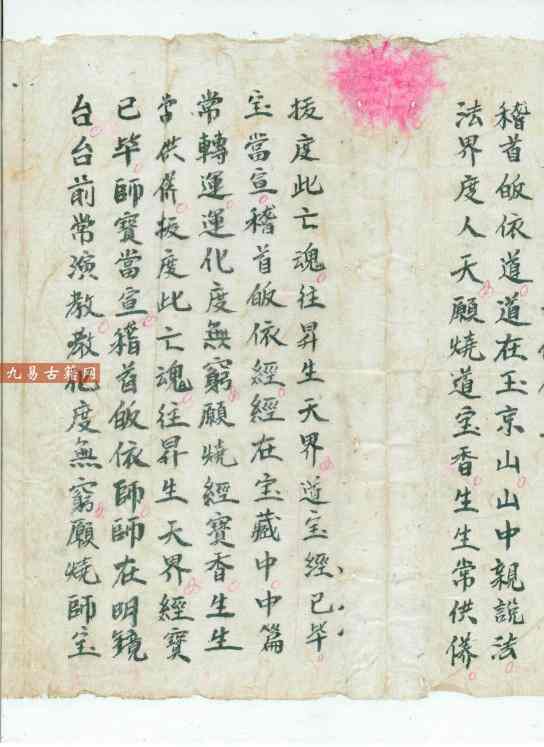 稽首皈依道道在玉京山山中親說法
法界度人天願燒道宝香生生常供養
拔度此亡魂往昇生天界道宝經已毕
宝當宣稽首皈依經經在宝藏中中篇
常轉運運化度無窮願燒經寶香生生
常供養拔度此亡魂往昇生天界經寶
已毕師寶當宣稽首皈依師師在明鏡
台台前常演教教化度無窮願燒師宝
九易古籍网